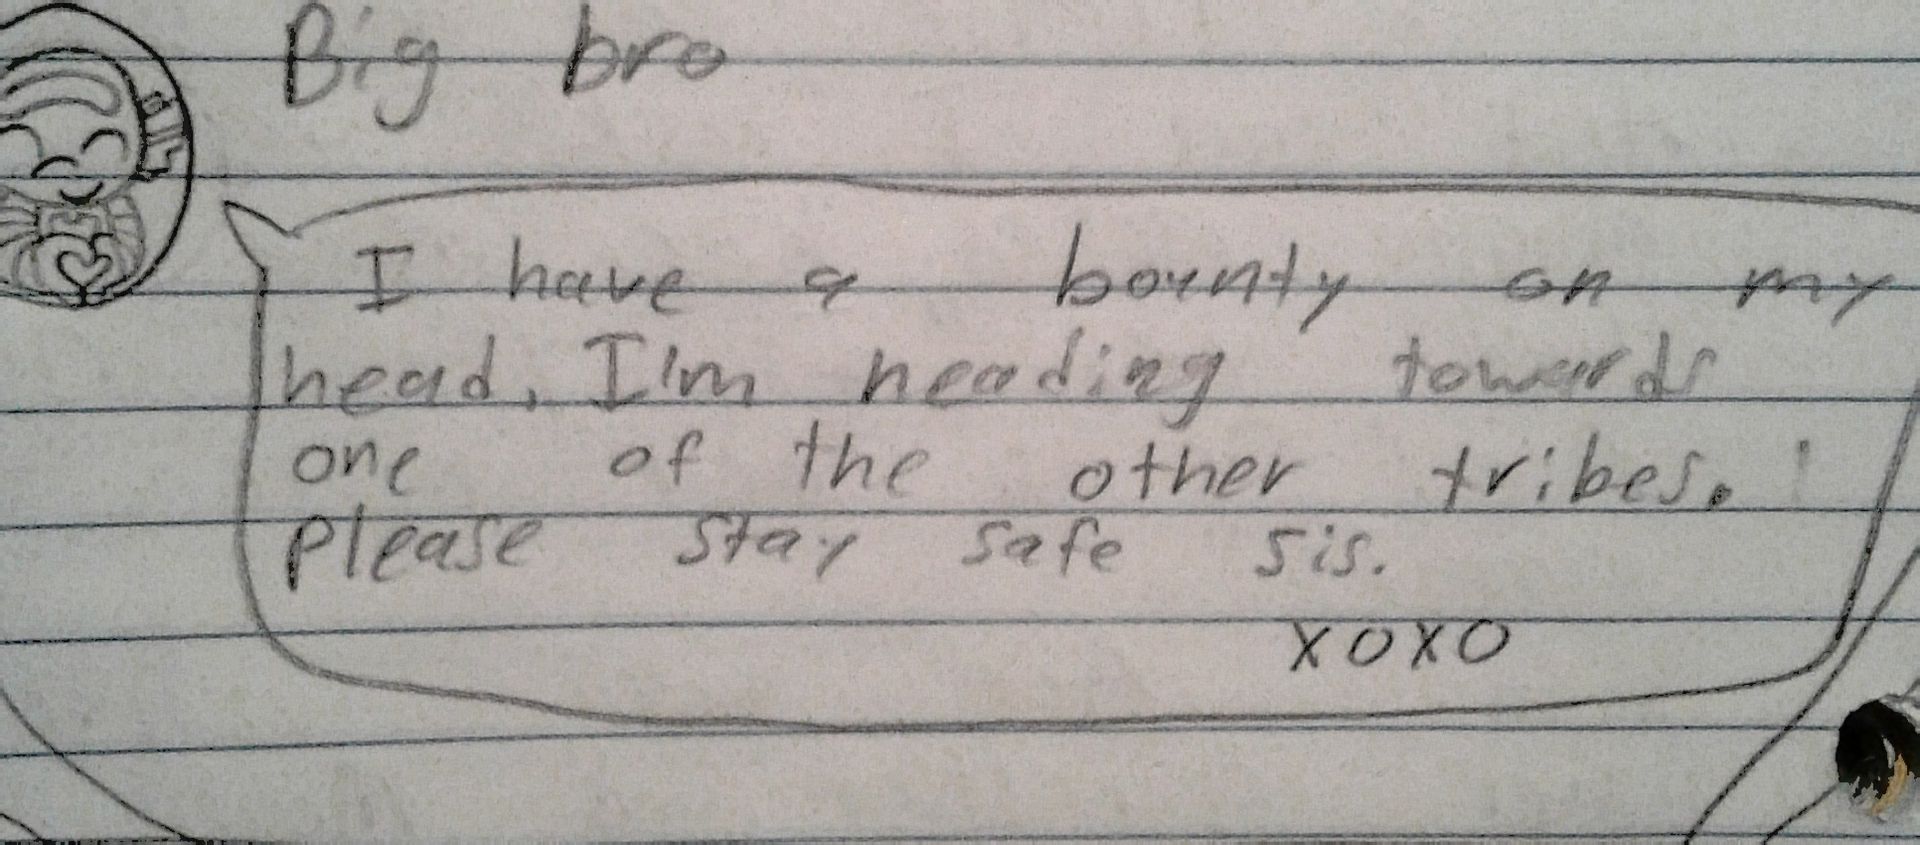 Big bro
I have a bounty on my
head, I'm heading towards
one of the other tribes.
Please stay safe sis.
XOXO